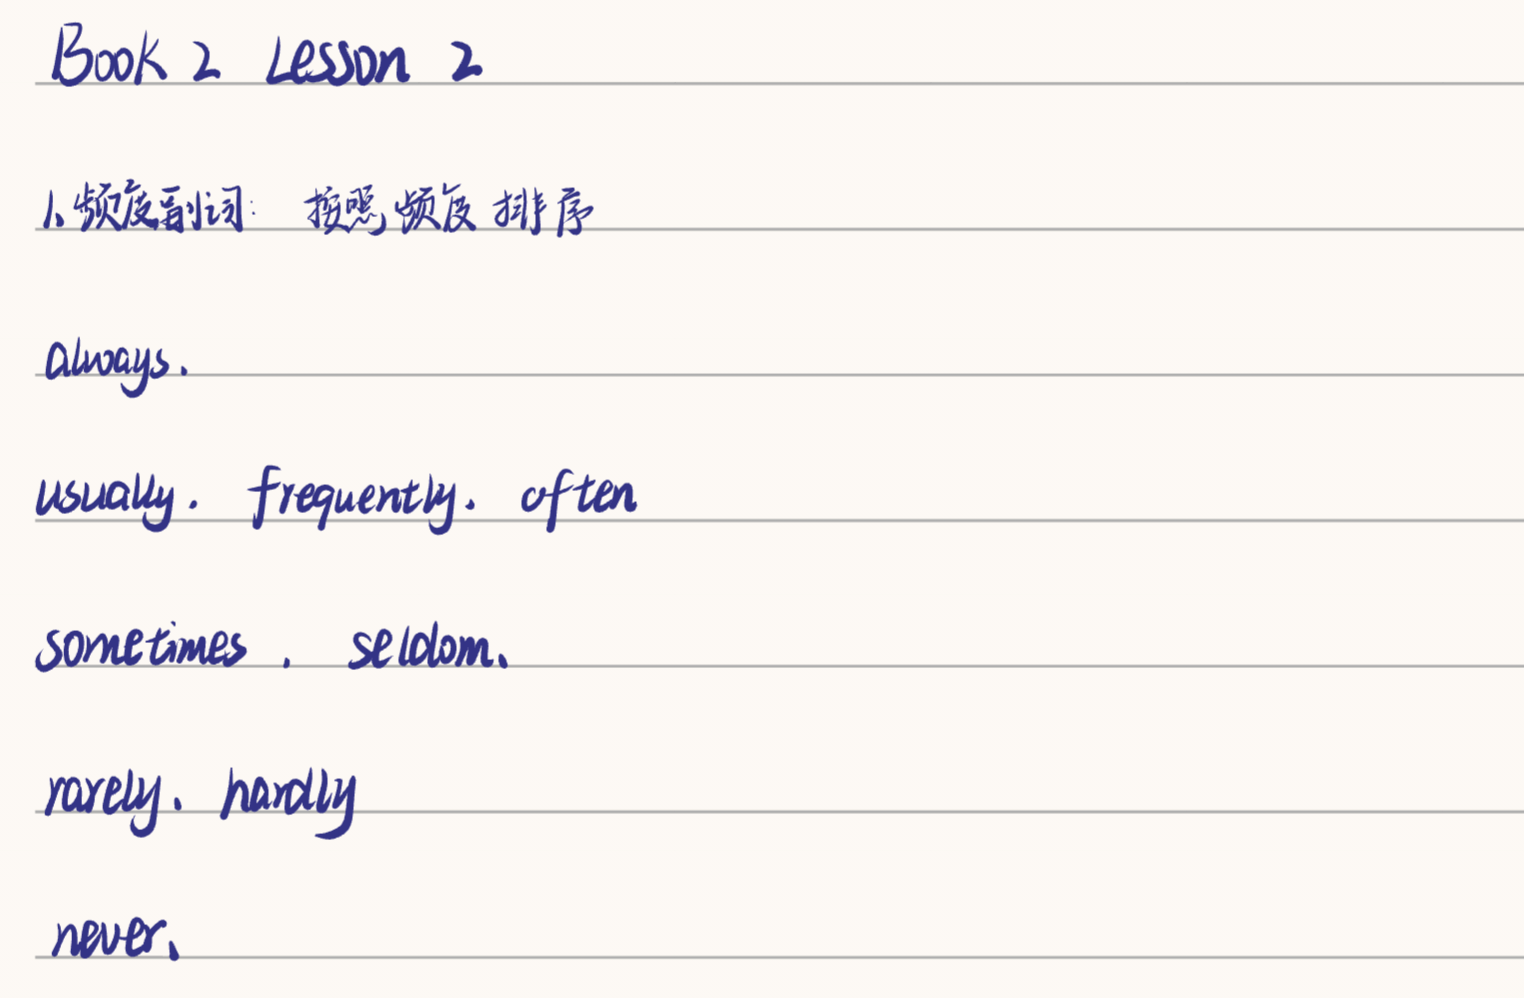 Book 2 Lesson 2
1、频度副词: 按照频度排序
always、
usually、 frequently、 often
sometimes 、 seldom、
rarely、 hardly
never、